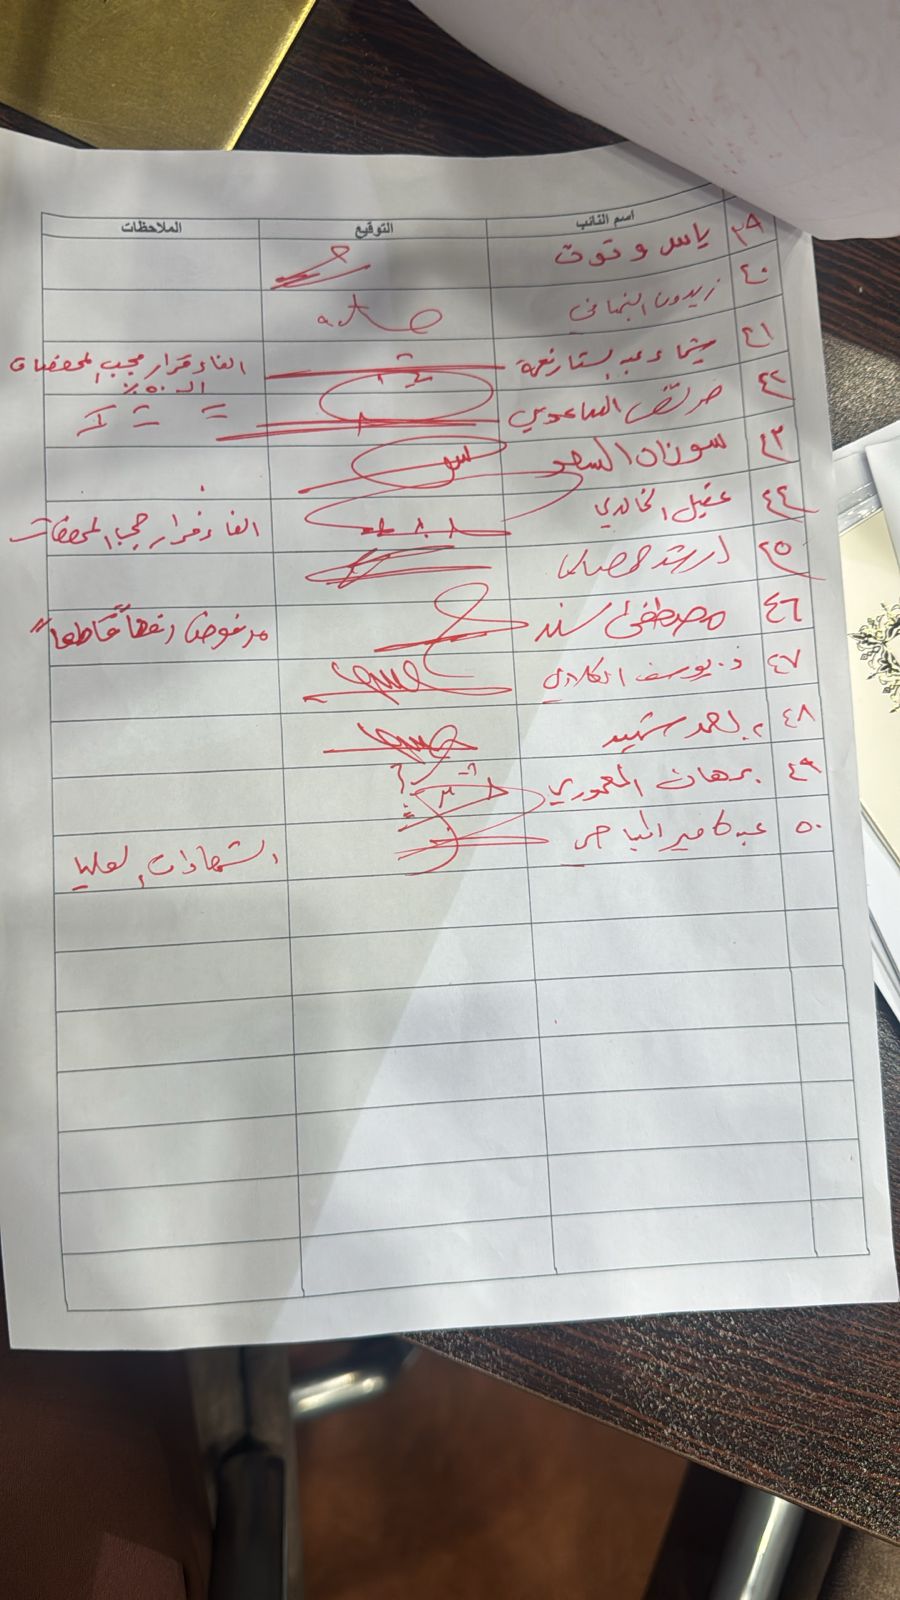 اسم النائب التوقيع الملاحظات
٣٩ ياس وتوت
٤٠ زيدون النبهاني
٤١ شيماء عبد الستار نعمة الغاء قرار حجب المخصصات
الـ ٥٠٪
٤٢ مرتضى الساعدي = = =
٤٣ سوزان السعد
٤٤ عقيل الخالدي الغاء قرار حجب المخصصات
٤٥ ارشد
٤٦ مصطفى سند مرفوض رفضاً قاطعاً
٤٧ د. يوسف الكلابي
٤٨ احمد شهيد
٤٩ برهان المعموري
٥٠ عبد الامير المياحي الشهادات العليا